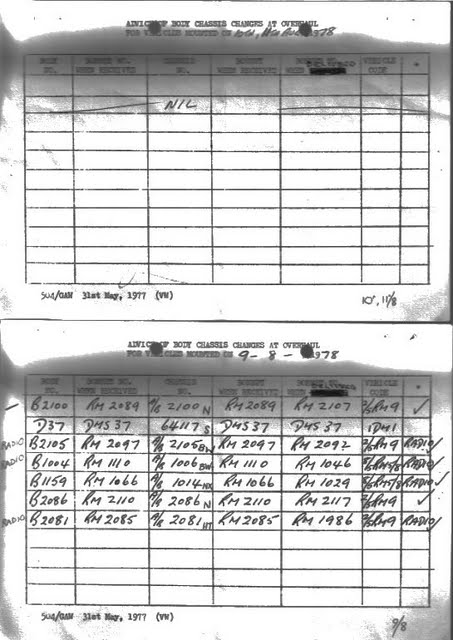 ADVICE OF BODY CHASSIS CHANGES AT OVERHAUL
FOR VEHICLES MOUNTED ON 10th, 11th Aug 1978
BODY NO. BONNET NO. WHEN RECEIVED CHASSIS NO. BONNET WHEN RECEIVED BONNET NO. WHEN DELIVERED VEHICLE CODE *
NIL
504/GAW 31st May, 1977 (VW)
10, 11/8
ADVICE OF BODY CHASSIS CHANGES AT OVERHAUL
FOR VEHICLES MOUNTED ON 9-8-1978
BODY NO. BONNET NO. WHEN RECEIVED CHASSIS NO. BONNET WHEN RECEIVED BONNET NO. WHEN VEHICLE CODE *
B2100 RM 2089 2100 N RM 2089 RM 2107 RM9 ✓
D37 DMS 37 64117 S DMS 37 DMS 37 1DM1
RADIO B2105 RM 2097 2105 RM 2097 RM 2092 RM9 RADIO/
RADIO B1004 RM 1110 1006 BW RM 1110 RM 1046 RM5/8 RADIO/
B1159 RM 1066 1014 NX RM 1066 RM 1029 RM5/8 RADIO/
B2086 RM 2110 2086 N RM 2110 RM 2117 RM9 ✓
RADIO B2081 RM 2085 2081 HT RM 2085 RM 1986 RM9 RADIO/
504/GAW 31st May, 1977 (VW)
9/8